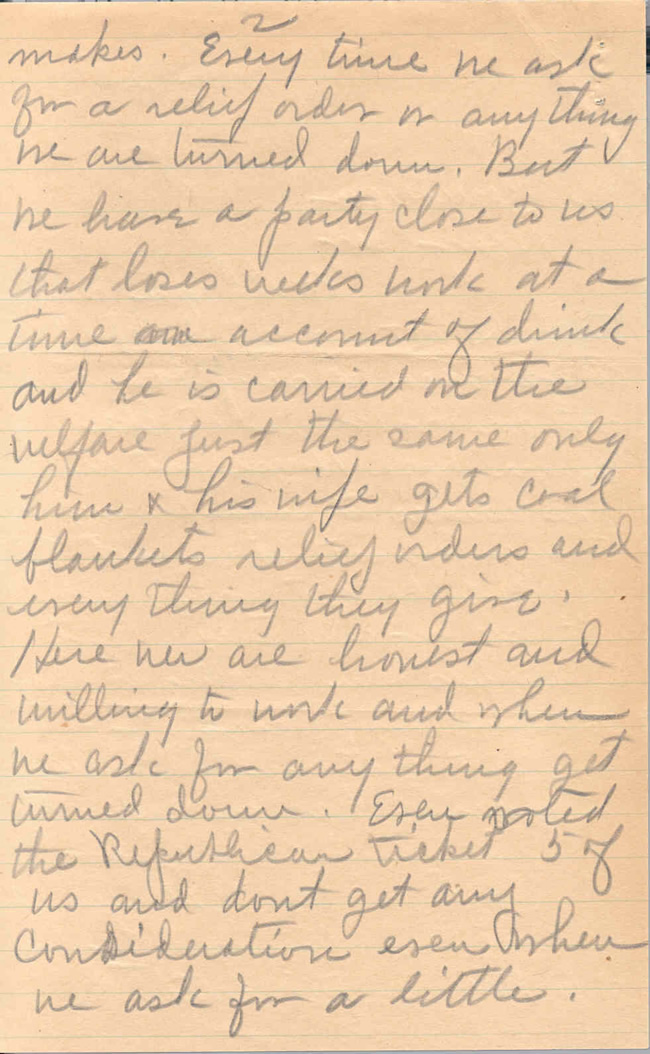 2
makes. Every time we ask
for a relief order or any thing
we are turned down. But
we have a party close to us
that loses weeks work at a
time on account of drink
and he is carried on the
welfare just the same only
him & his wife gets coal
blankets relief orders and
every thing they give.
Here we are honest and
willing to work and when
we ask for any thing get
turned down. Even voted
the Republican ticket 5 of
us and dont get any
Consideration even when
we ask for a little.